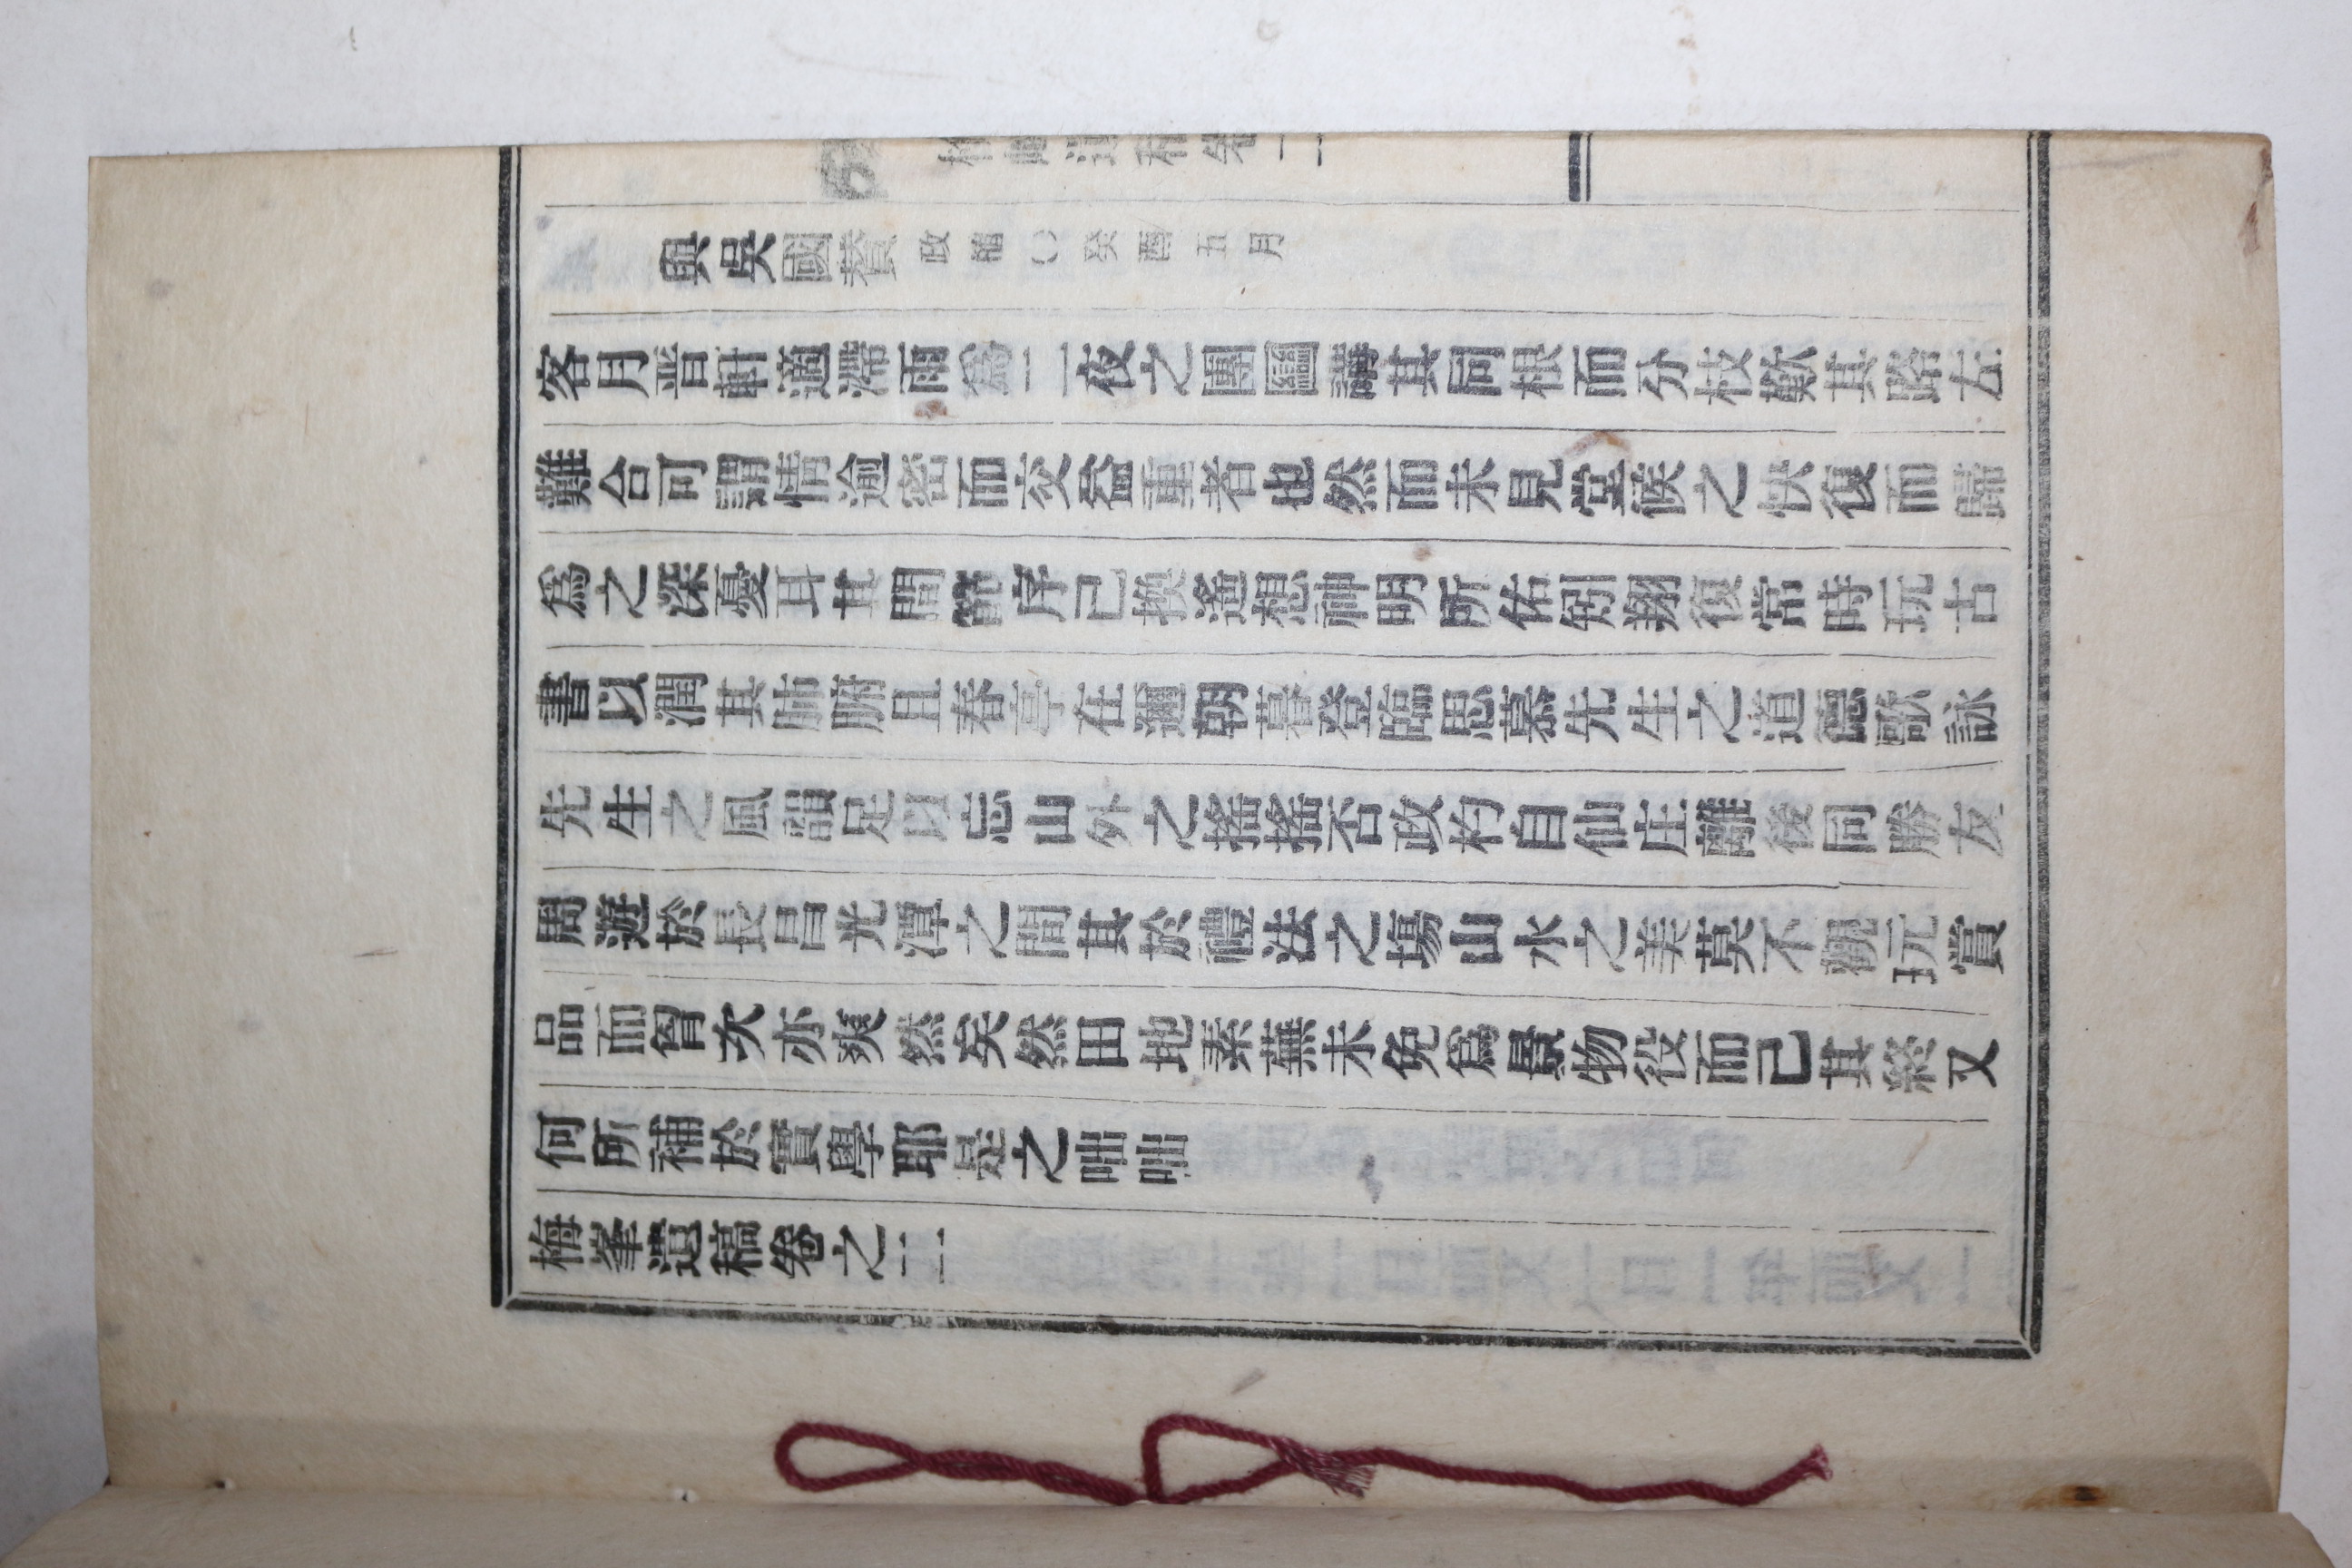 梅峯遺稿卷二
與吳國賛 政○癸酉五月
客月晉軒適滯雨爲二夜之團圞講其同根而分枝歎其路左
難合可謂情逾密而交益重者也然而未見堂候之快復而歸
爲之深憂耳其間序已換遙想神明所佑矧翔復常時玩古
書以潤其肺腑且春亭在邇朝暮登臨思慕先生之道德歌詠
先生之風韻足以忘山外之搖搖否政杓自仙庄離後同勝友
周遊於長昌光潭之間其於禮法之場山水之美莫不翫玩賞
品而胷次亦爽然矣然田地素蕪未免爲景物役而已其終又
何所補於實學耶是之咄咄
梅峯遺稿卷之二